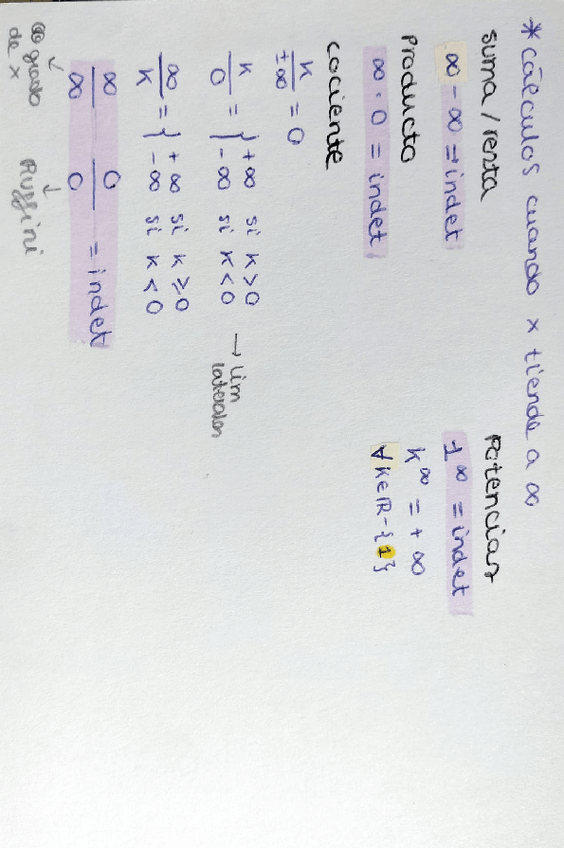 *cálculos cuando x tiende a ∞
suma/resta
∞ - ∞ = indet
Producto
∞ · 0 = indet
cociente
K/±∞ = 0
K/0 = { +∞ si K > 0
-∞ si K < 0
→ Lim laterales
∞/K = { +∞ si K ≥ 0
-∞ si K < 0
∞/∞ 0/0 = indet
↓ ↓
grado de x Ruffini
Potencias
1^∞ = indet
K^∞ = +∞
∀K∈ℝ-{1}